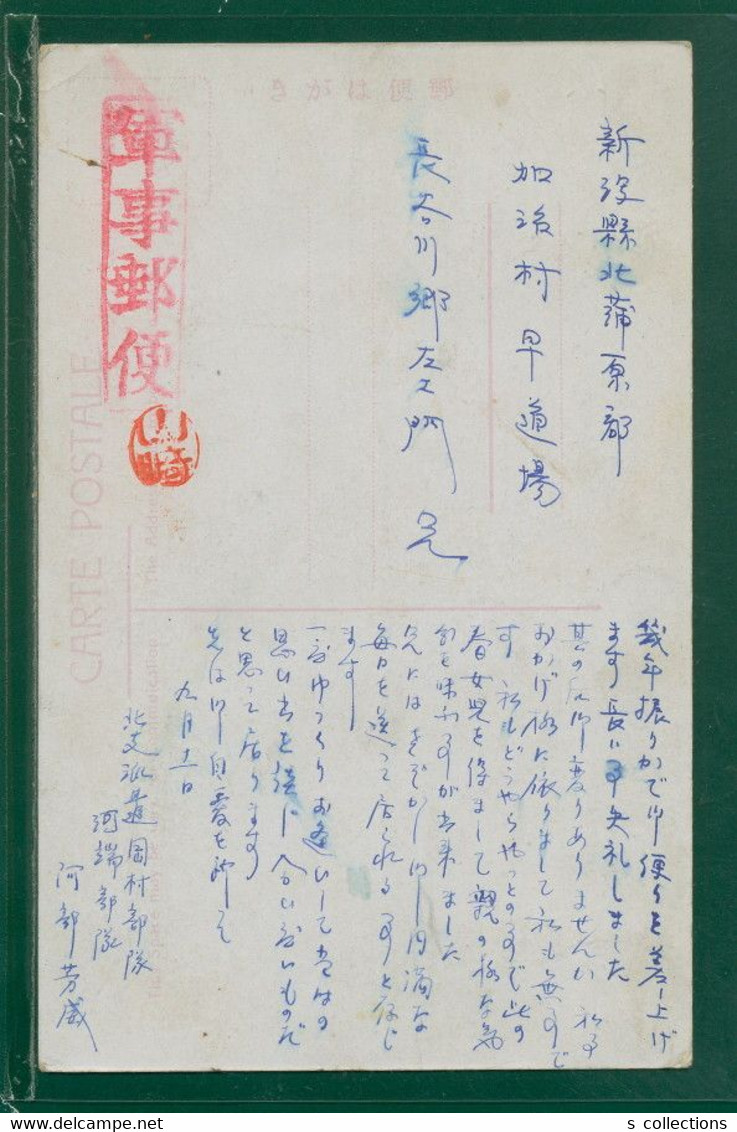 郵便はがき
軍事郵便
山崎
CARTE POSTALE
新潟縣北蒲原郡
加治村早道場
長谷川郷左エ門兄
幾年振りかで御便りを差上げ
ます 長い事失礼しました
其の后御変りありませんか 私事
おかげ様に依りまして私も無事で
す 私もどうやらやっとの事で此の
春女児を得まして親の様な気
分を味わう事が出来ました
兄にはさぞかし御円満な
毎日を送って居られる事と存じ
ます
一度ゆっくりお逢いして当時の
思い出を談じ合い度いものだ
と思って居ります
先は御自愛を祈って
九月十一日
北支派遣岡村部隊
河端部隊
阿部芳威
s collections
delcampe.net